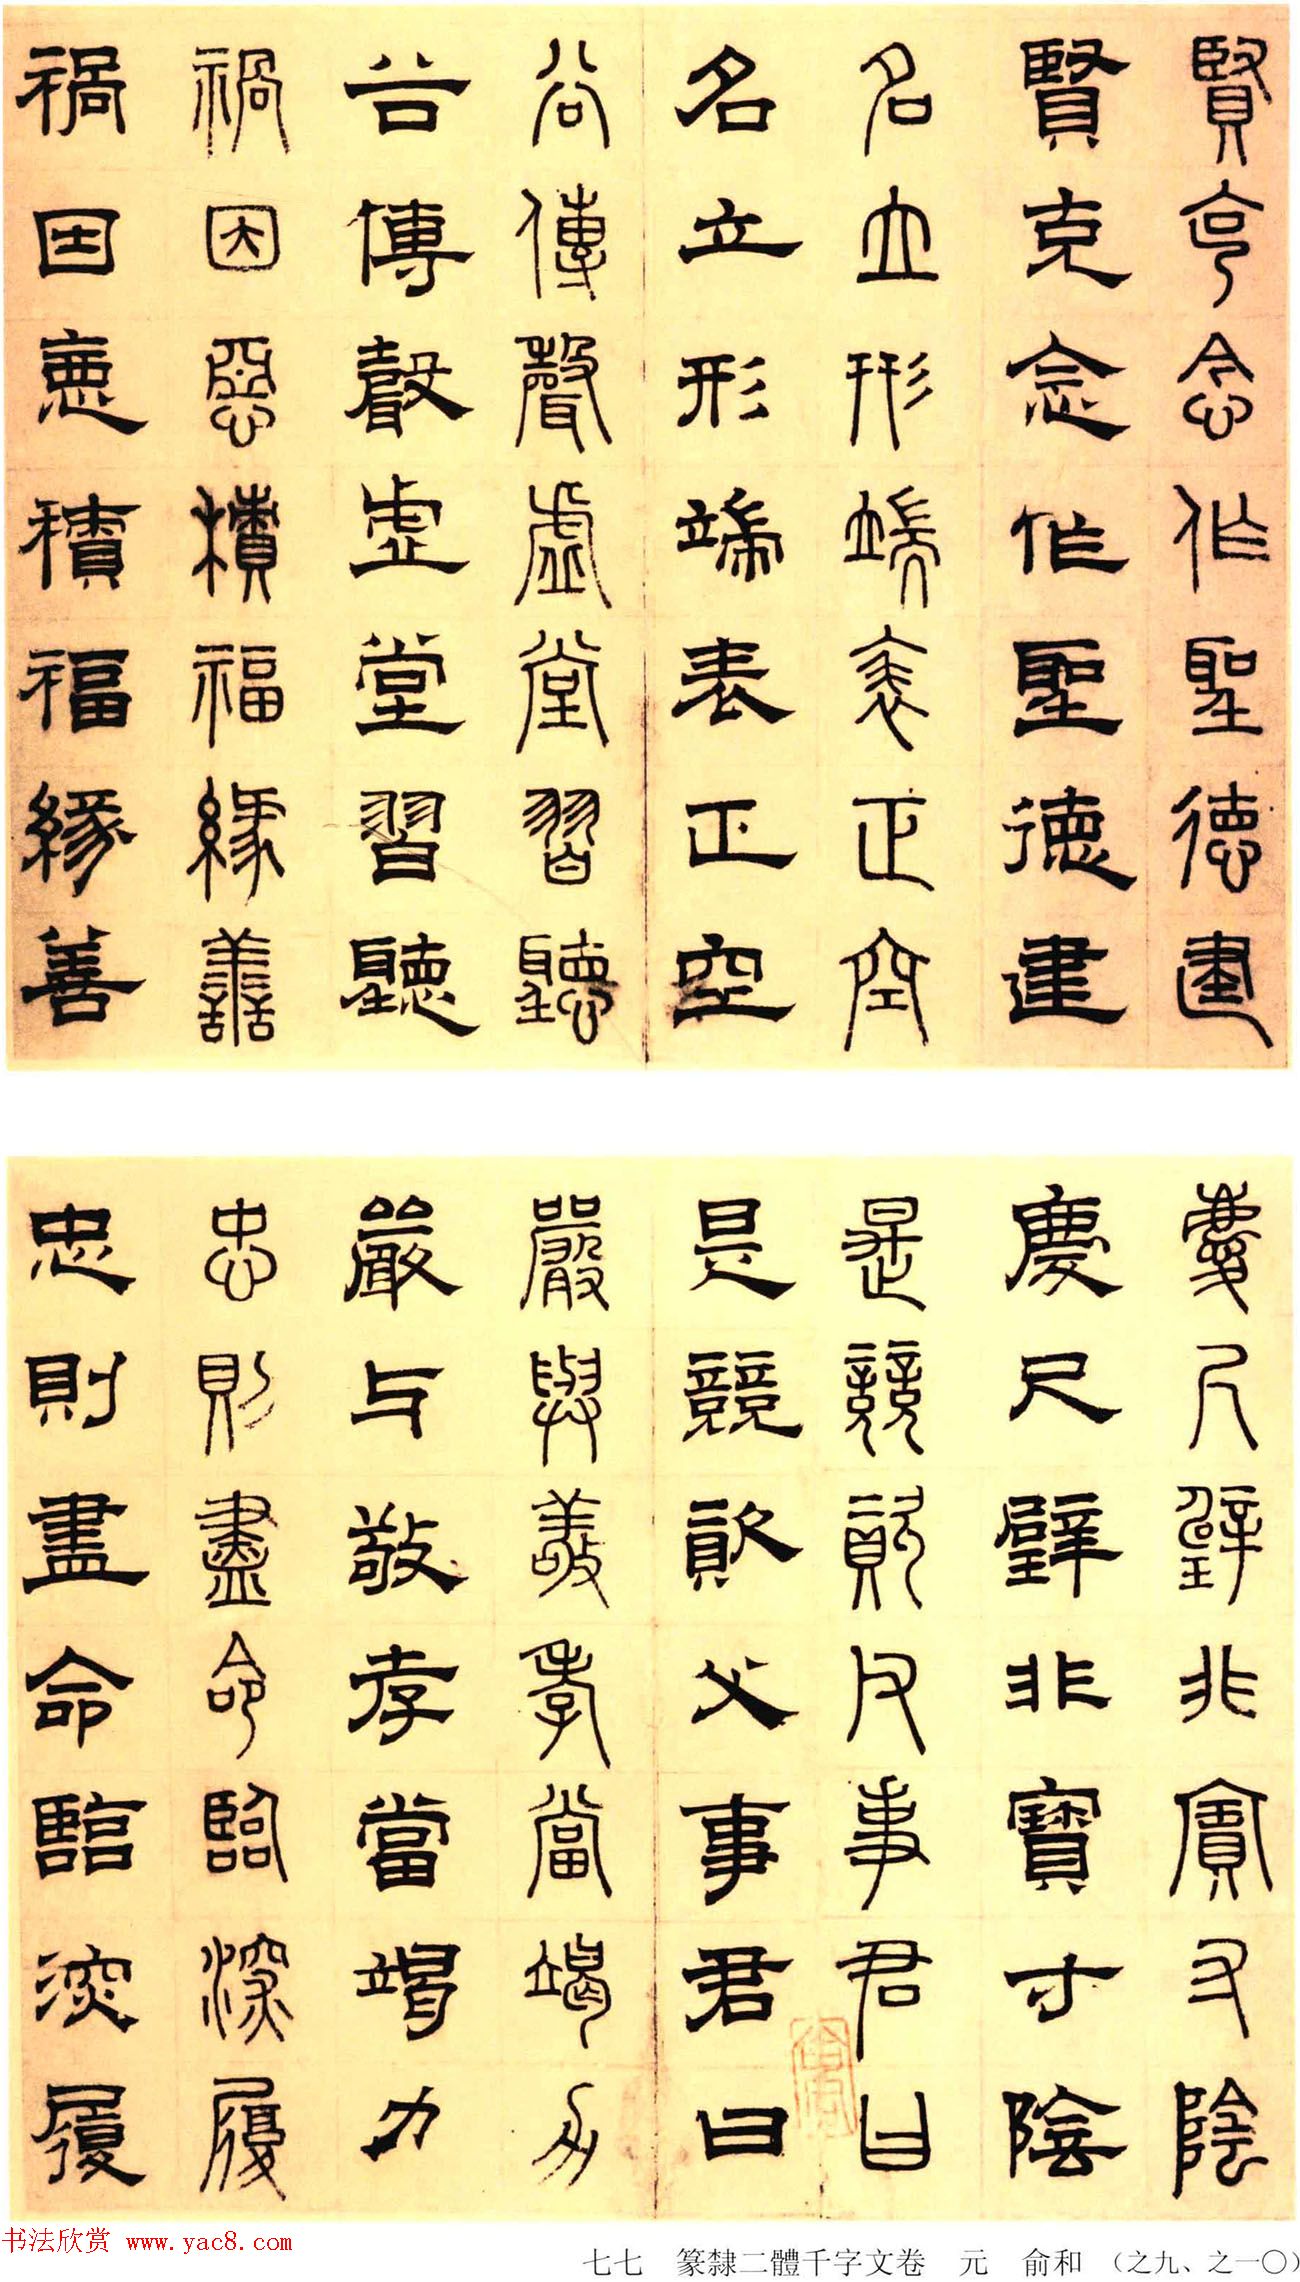 賢克念作聖德建
賢克念作聖德建
名立形端表正空
名立形端表正空
谷傳聲虛堂習聽
谷傳聲虛堂習聽
禍因惡積福緣善
禍因惡積福緣善
慶尺璧非寶寸陰
慶尺璧非寶寸陰
是競資父事君曰
是競資父事君曰
嚴與敬孝當竭力
嚴与敬孝當竭力
忠則盡命臨深履
忠則盡命臨深履
七七 篆隸二體千字文卷 元 俞和 (之九、之一〇)
书法欣赏 www.yac8.com